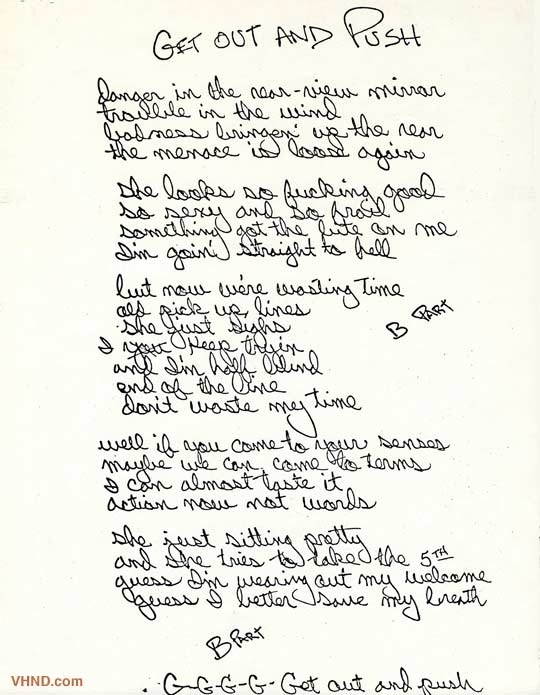 GET OUT AND PUSH
danger in the rear-view mirror
trouble in the wind
badness bringen' up the rear
the menace is loose again
she looks so fucking good
so sexy and so frail
something got the bite on me
I'm goin' straight to hell
but now we're wasting time
old pick up lines
she just sighs
B PART
I you keep tryin
and I'm half blind
end of the line
don't waste my time
well if you come to your senses
maybe we can come to terms
I can almost taste it
action now not words
she just sitting pretty
and she tries to take the 5TH
guess I'm wearing out my welcome
guess I better save my breath
B PART
G-G-G-G- Get out and push
VHND.com